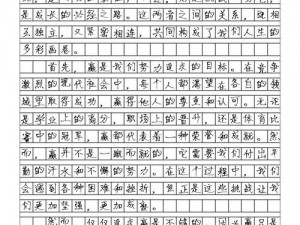 是成长的必经之路。这两者之间的关系，既相
互独立，又紧密相连，共同构成了我们人生的
多彩画卷。
首先，赢是我们努力追求的目标。在竞争
激烈的现代社会中，每个人都渴望在各自的领
域里取得成功，赢得他人的尊重和认可。无论
是学业上的高分，职场上的晋升，还是体育比
赛中的冠军，赢都代表着一种荣誉和成就。然
而，赢并不是一蹴而就的，它需要我们付出辛
勤的汗水和不懈的努力。在这个过程中，我们
会遇到各种困难和挫折，但正是这些挑战让我
们更加坚强，更加成熟。
然而，仅仅追求赢是不够的。